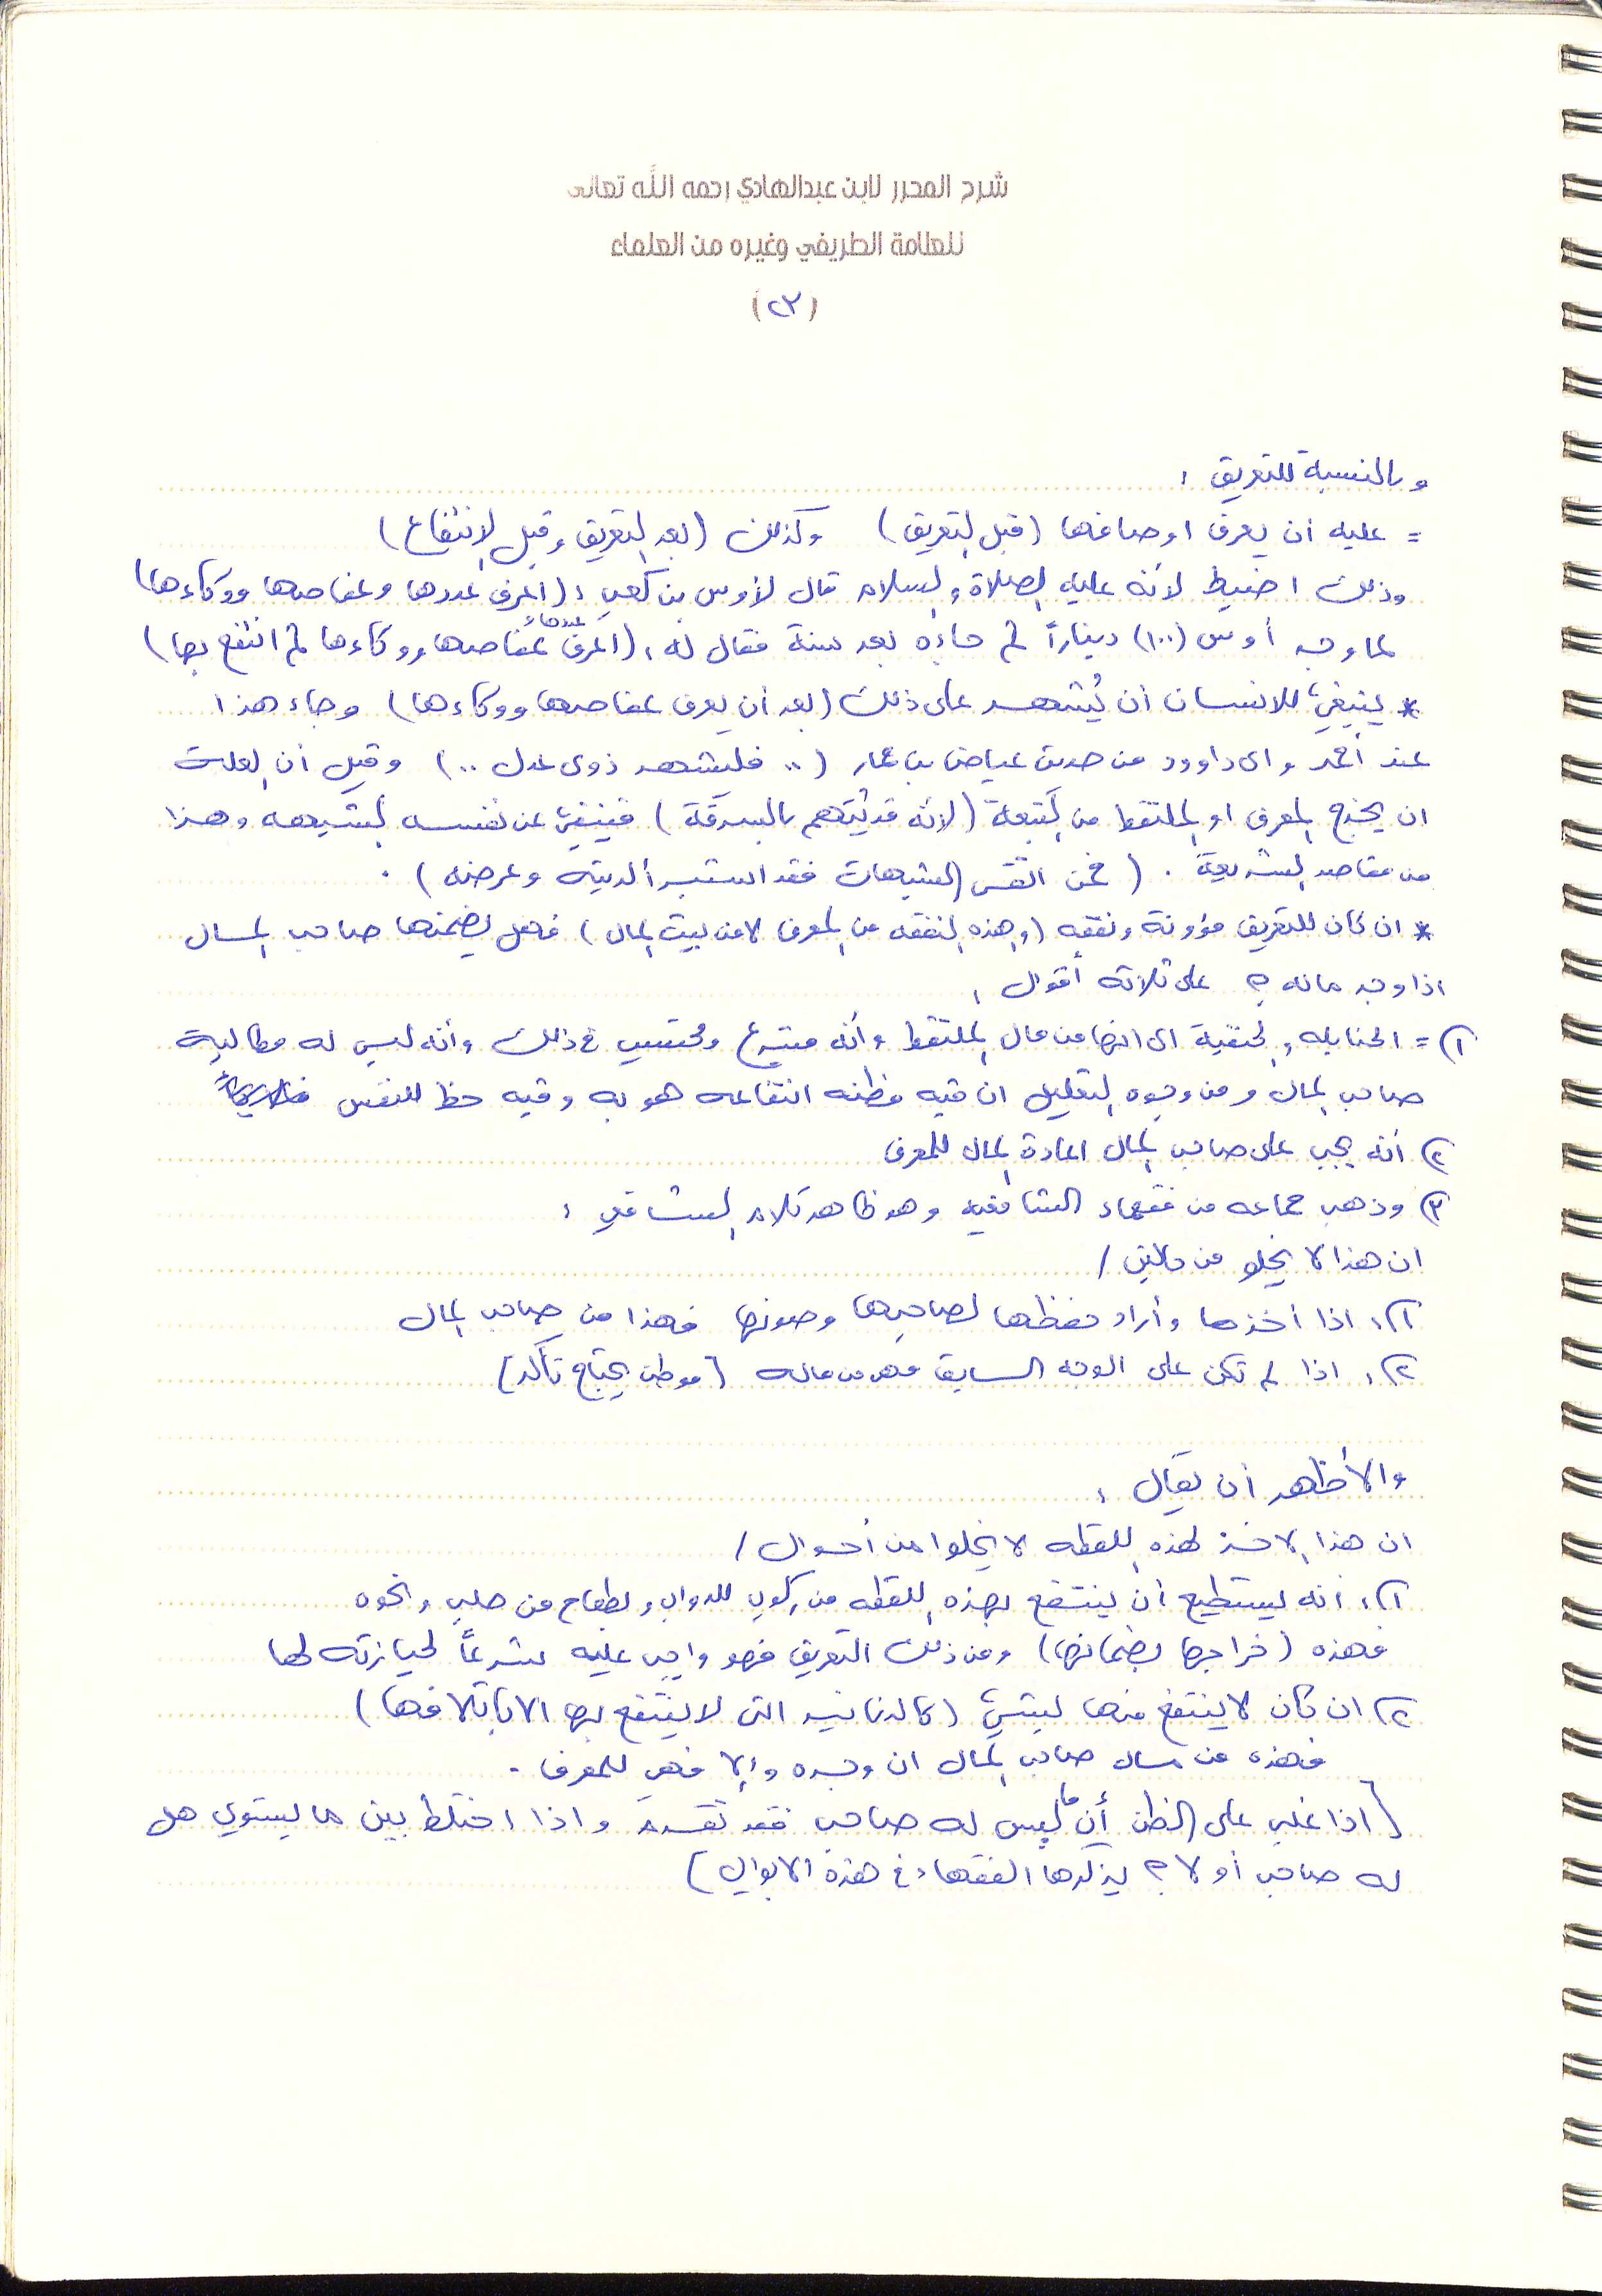 شرح المحرر لابن عبدالهادي رحمه الله تعالى
للعلامة الطريفي وغيره من العلماء
(٢٣)
وبالنسبة للتعريف :
= عليه أن يعرف اوصافها (قبل التعريف) وكذلك (بعد التعريف وقبل الانتفاع)
وذلك اضبط لأنه عليه الصلاة والسلام قال لأوس بن كعب : (اعرف عددها وعفاصها ووكاءها)
لما وجد أوس (١٠٠) ديناراً ثم جاءه بعد سنة فقال له : (اعرف عددها وعفاصها ووكاءها ثم انتفع بها)
* ينبغي للانسان أن يُشهد على ذلك (بعد أن يعرف عفاصها ووكاءها) وجاء هذا
عند أحمد وابي داوود من حديث عياض بن حمار (.. فليشهد ذوى عدل ..) وقيل أن العلة
ان يخرج المعرف او الملتقط من التبعة (لأنه قد يُتهم بالسرقة) فينفي عن نفسه الشبهه وهذا
من مقاصد الشريعة . (فمن اتقى الشبهات فقد استبرأ لدينه وعرضه) .
* ان كان للتعريف مؤونة ونفقه (وهذه النفقه من المعرف لا من بيت المال) فهل يضمنها صاحب المال
اذا وجد ماله ؟ على ثلاثة أقوال :
١) = الحنابله والحنفية الى انها من مال الملتقط وأنه متبرع ومحتسب في ذلك وأنه ليس له مطالبة
صاحب المال ومن وجوه التعليل ان فيه مظنه انتفاعه هو به وفيه حظ للنفس
٢) أنه يجب على صاحب المال اعادة المال للمعرف
٣) وذهب جماعه من فقهاء الشافعيه وهو ظاهر كلام الشافعي :
ان هذا لا يخلو من حالين /
١) : اذا أخذها وأراد حفظها لصاحبها وصونها فهذا من صاحب المال
٢) : اذا لم تكن على الوجه السابق فهو من ماله [موطن يحتاج تأكد]
والأظهر أن يقال :
ان هذا الاخذ لهذه اللقطه لا يخلوا من أحوال /
١) : أنه يستطيع أن ينتفع بهذه اللقطه من ركوب للدواب وطعام من حلب ونحوه
فهذه (خراجها بضمانها) ومن ذلك التعريف فهو واجب عليه شرعاً لحيازته لها
٢) ان كان لا ينتفع منها بشيء (كالدنانير التى لا ينتفع بها الا باتلافها)
فهذه من مال صاحب المال ان وجده وإلا فهي للمعرف .
[اذا غلب على الظن أن ما ليس له صاحب فقد تقدم واذا اختلط بين ما يستوي هل
له صاحب أو لا ؟ يذكرها الفقهاء في هذه الابواب]